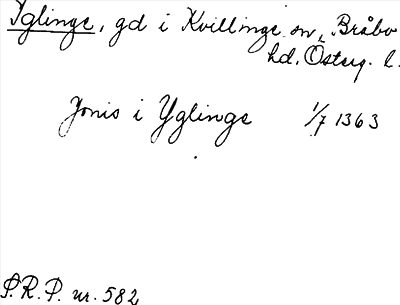 Yglinge, gd i Kvillinge sn, Bråbo
hd, Österg. l.
Jonis i Yglinge 1/7 1363
S.R.P. nr. 582